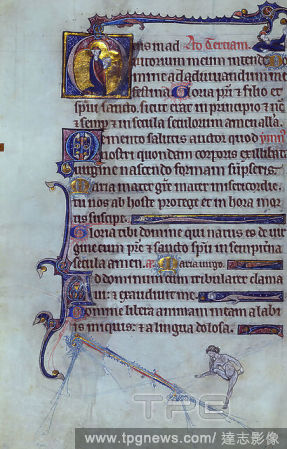 eus in ad Ad Terciam.
iutorium meum intende Do
mine ad adiuuandum me
festina Gloria pri & filio et
spui sancto. sicut erat in principio & nc
& semp & in secula seculorum amen alla.
Memento salutis auctor quod
nostri quondam corporis ex illibata
uirgine nascendo formam sumpseris.
Maria mater grie mater misericordie
tu nos ab hoste protege et in hora mor
tis suscipe.
Gloria tibi domine qui natus es de uir
gine cum pre & sancto spu in sempiterna
secula amen. a. Maria uirgo.
Ad dominum cum tribularer clama
ui: & exaudiuit me.
Domine libera animam meam a labi
is iniquis: & a lingua dolosa.
TPG
www.tpgnews.com / 達志影像